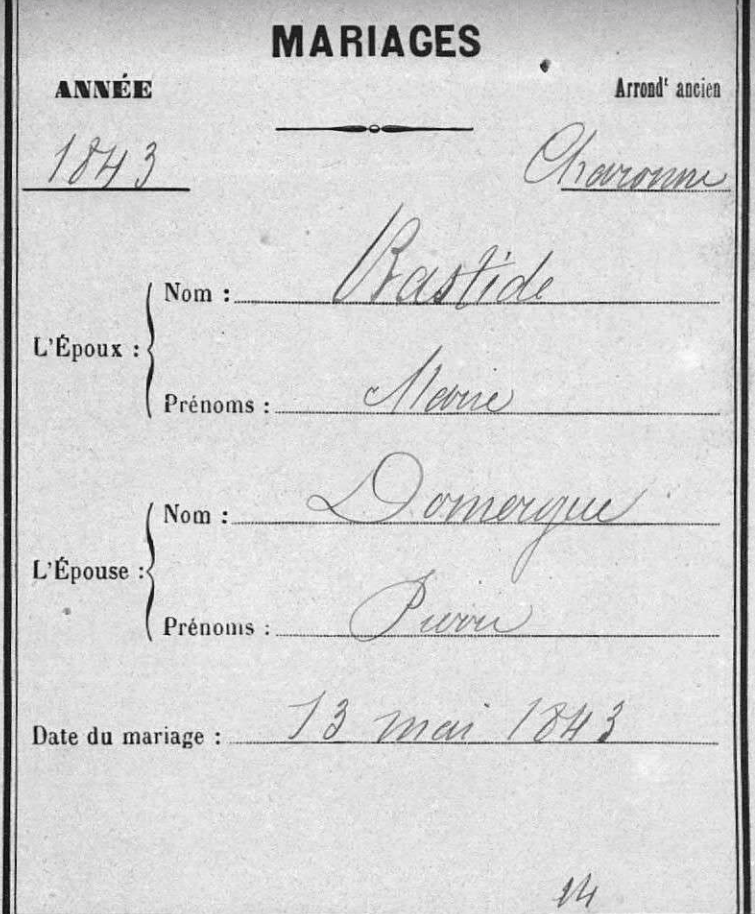 MARIAGES
ANNÉE
Arrondᵗ ancien
1843
Charonne
L'Époux :
Nom : Bastide
Prénoms : Marie
L'Épouse :
Nom : Domergue
Prénoms : Pierre
Date du mariage : 13 mai 1843